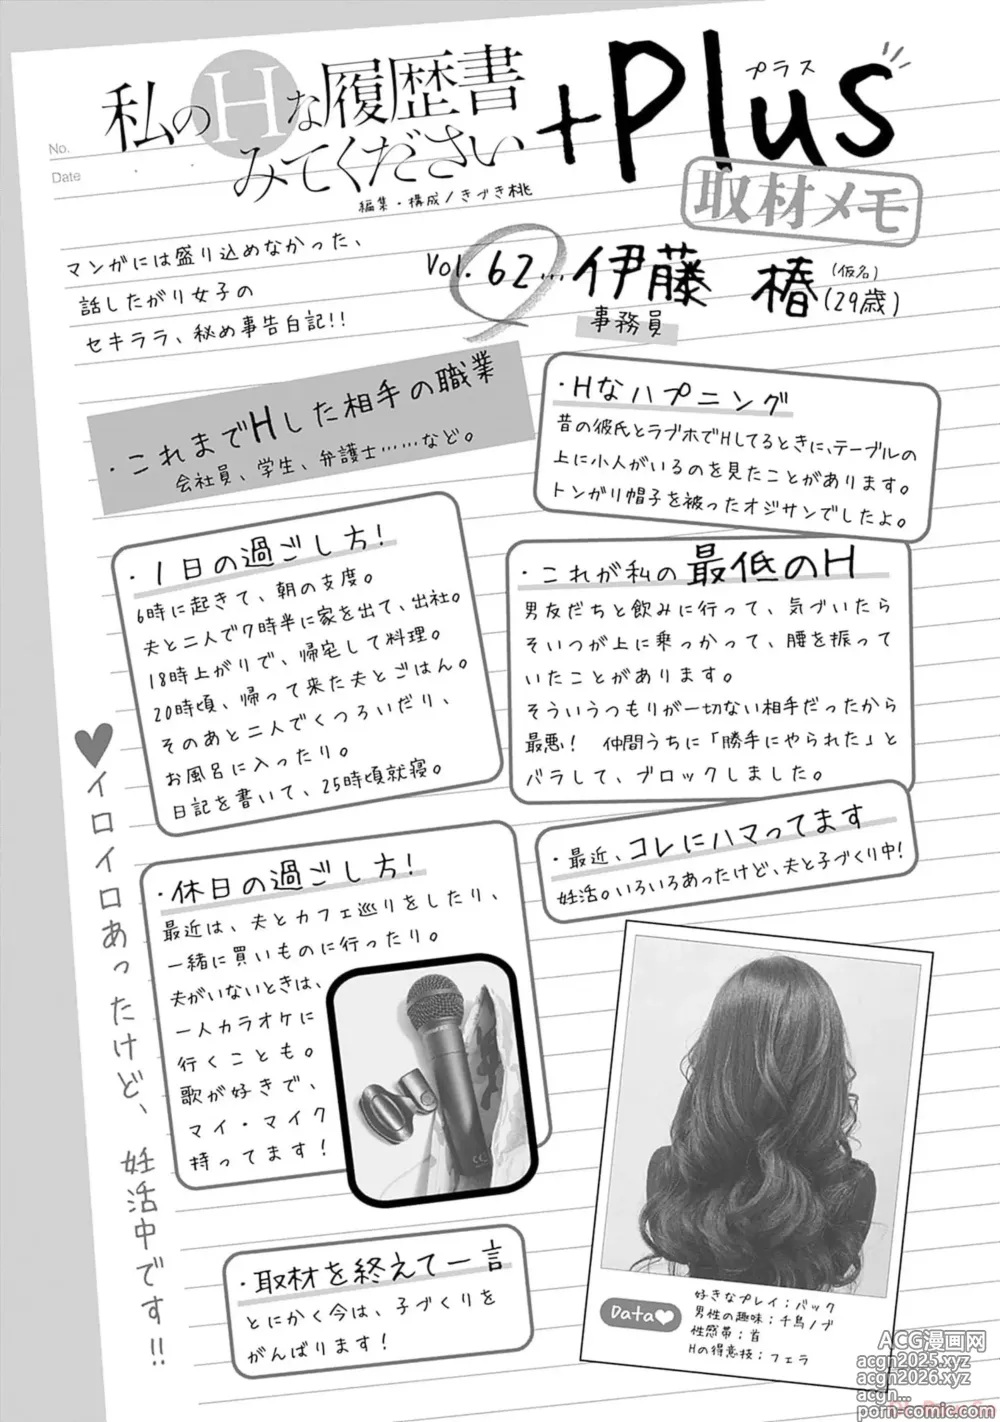 No.
Date
私のHな履歴書
みてください
+Plus
プラス
編集・構成/きづき桃
取材メモ
マンガには盛り込めなかった、
話したがり女子の
セキララ、秘め事告白記!!
Vol.62…伊藤 椿(仮名)(29歳)
事務員
・これまでHした相手の職業
会社員、学生、弁護士……など。
・Hなハプニング
昔の彼氏とラブホでHしてるときに、テーブルの
上に小人がいるのを見たことがあります。
トンガリ帽子を被ったオジサンでしたよ。
・1日の過ごし方!
6時に起きて、朝の支度。
夫と二人で7時半に家を出て、出社。
18時上がりで、帰宅して料理。
20時頃、帰って来た夫とごはん。
そのあと二人でくつろいだり、
お風呂に入ったり。
日記を書いて、25時頃就寝。
・これが私の最低のH
男友だちと飲みに行って、気づいたら
そいつが上に乗っかって、腰を振って
いたことがあります。
そういうつもりが一切ない相手だったから
最悪! 仲間うちに「勝手にやられた」と
バラして、ブロックしました。
・最近、コレにハマってます
妊活。いろいろあったけど、夫と子づくり中!
♥イロイロあったけど、妊活中です!!
・休日の過ごし方!
最近は、夫とカフェ巡りをしたり、
一緒に買いものに行ったり。
夫がいないときは、
一人カラオケに
行くことも。
歌が好きで、
マイ・マイク
持ってます!
・取材を終えて一言
とにかく今は、子づくりを
がんばります!
Data♥
好きなプレイ;バック
男性の趣味;千鳥ノブ
性感帯;首
Hの得意技;フェラ
ACG漫画网
acgn2025.xyz
acgn2026.xyz
acgn...
porn-comic.com